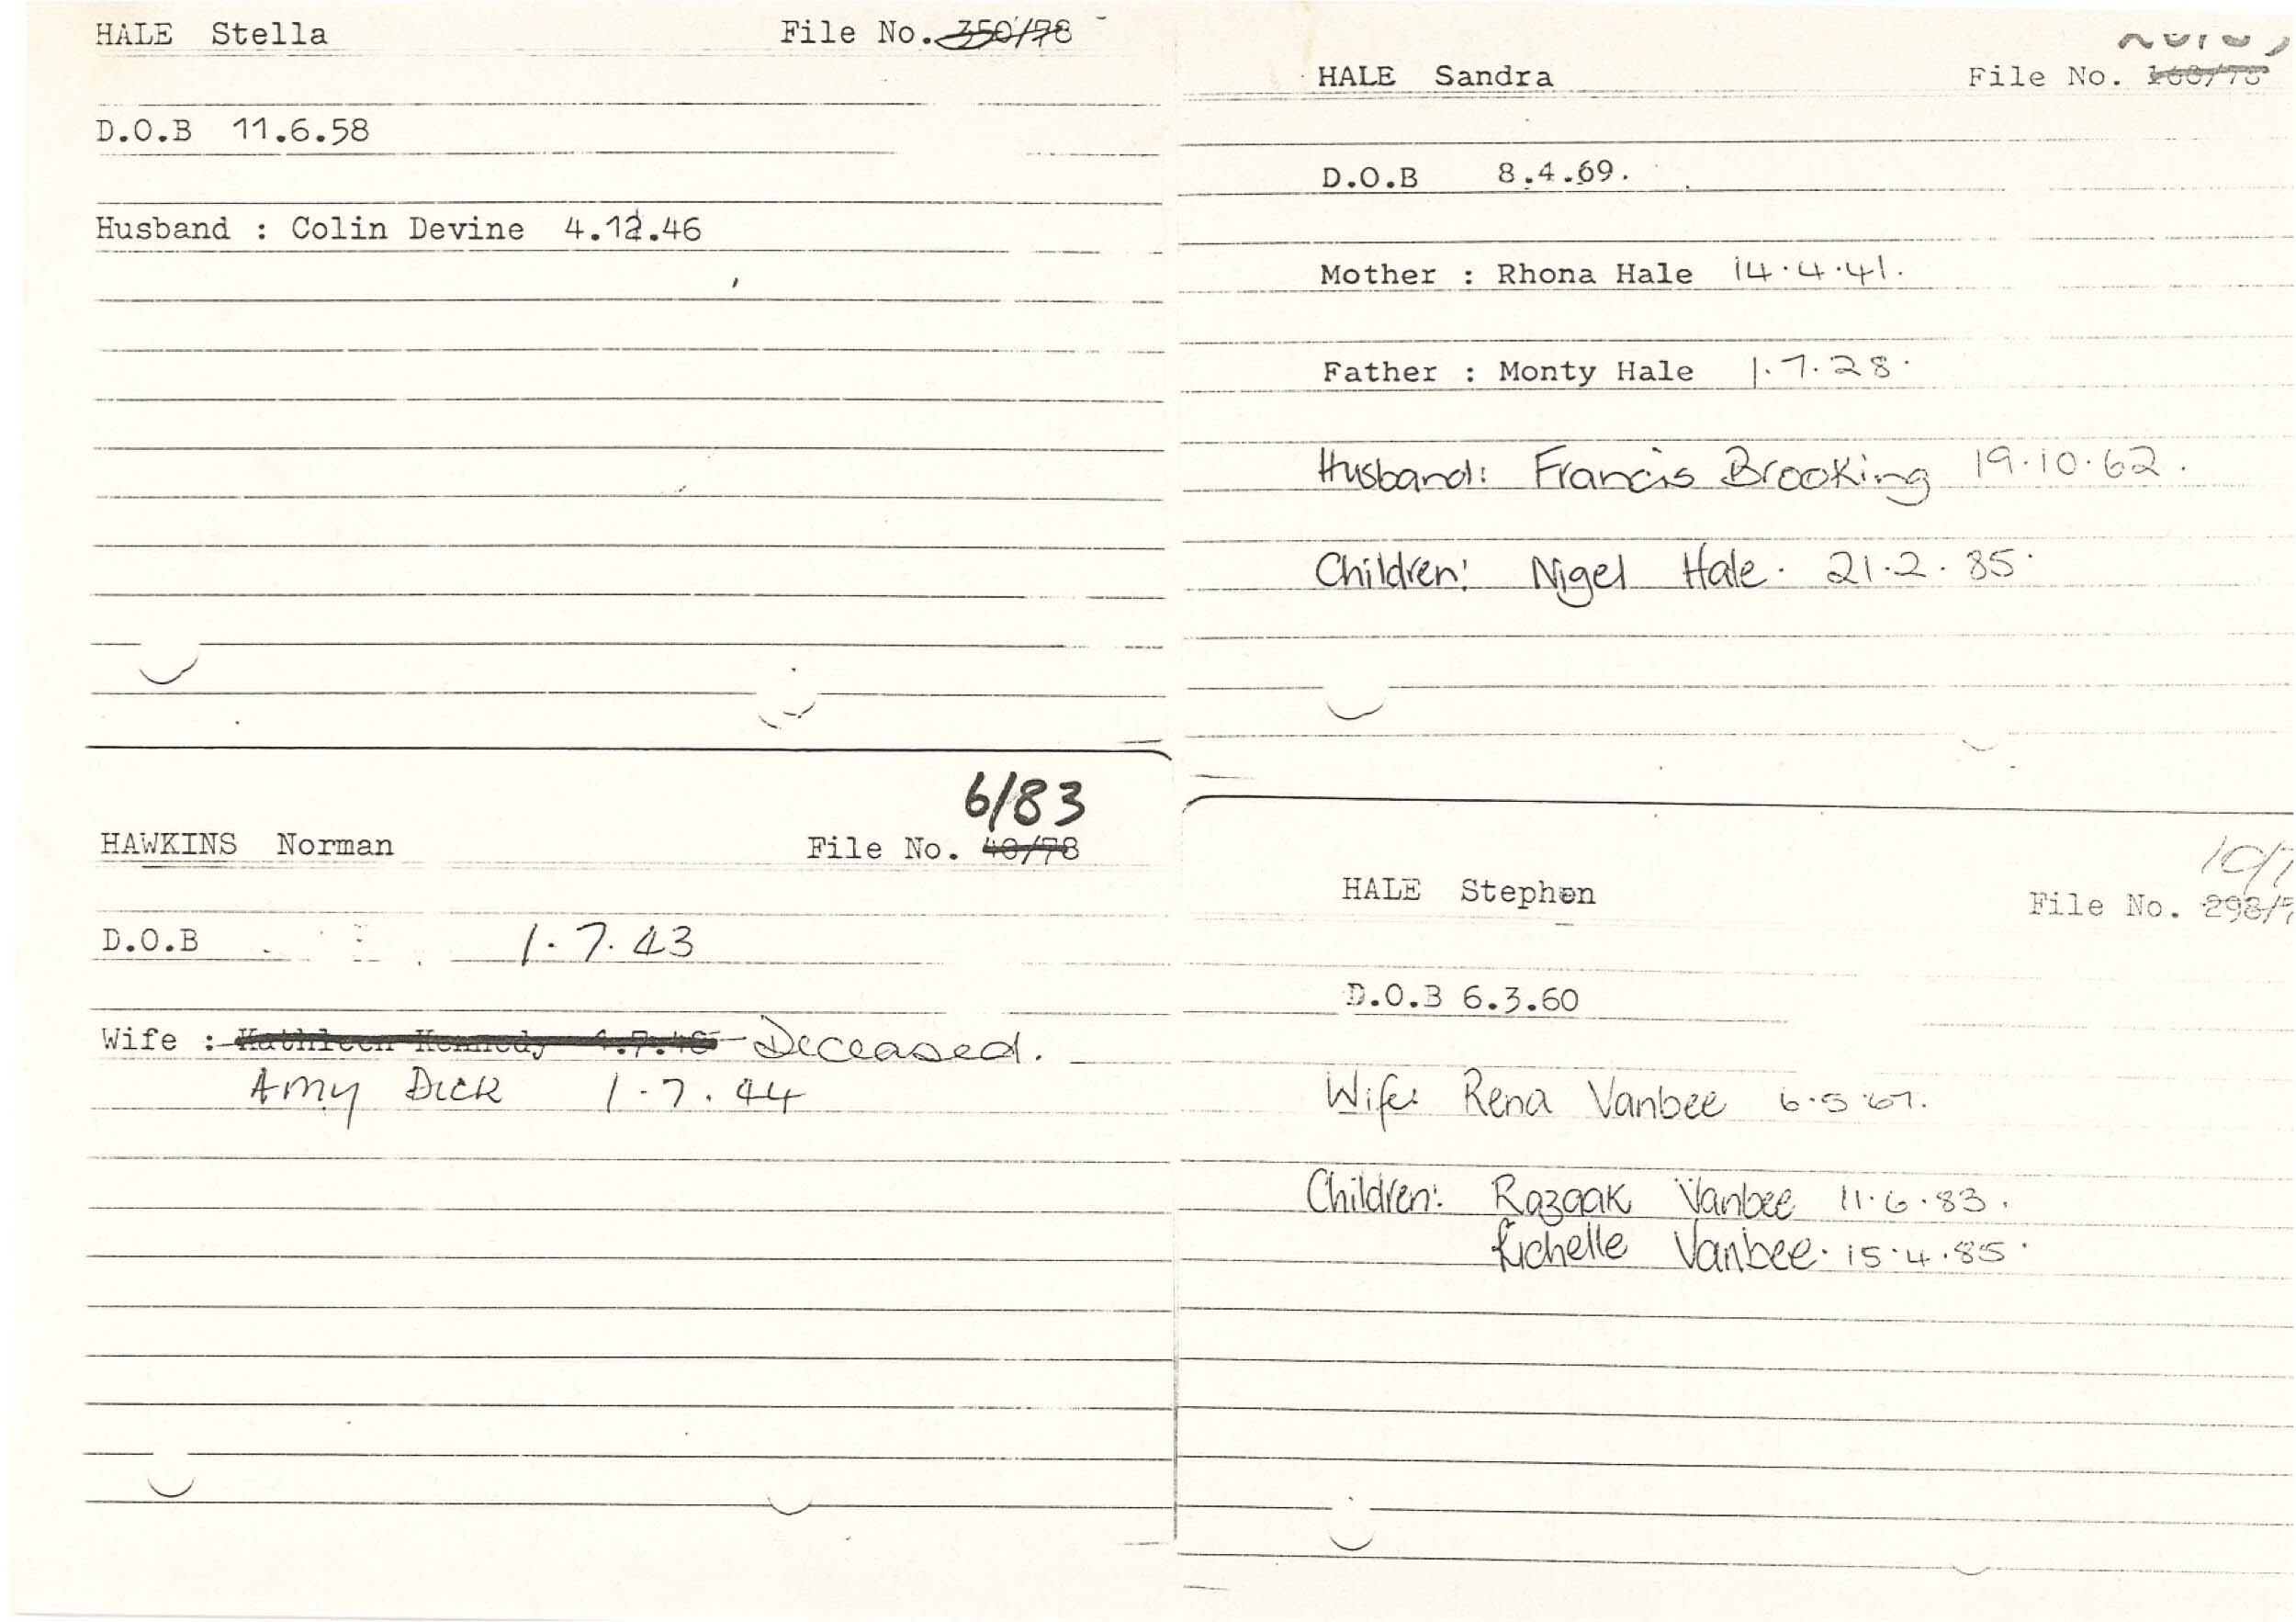 HALE Stella File No. 350/78
D.O.B 11.6.58
Husband : Colin Devine 4.12.46
HALE Sandra File No.
D.O.B 8.4.69.
Mother : Rhona Hale 14.4.41.
Father : Monty Hale 1.7.28.
Husband: Francis Brooking 19.10.62.
Children: Nigel Hale. 21.2.85.
6/83
HAWKINS Norman File No. 40/78
D.O.B 1.7.43
Wife : Kathleen Kennedy Deceased.
Amy Dick 1.7.44
HALE Stephen File No. 298/7
D.O.B 6.3.60
Wife: Rena Vanbee 6.5.67.
Children: Razaak Vanbee 11.6.83.
Richelle Vanbee. 15.4.85.